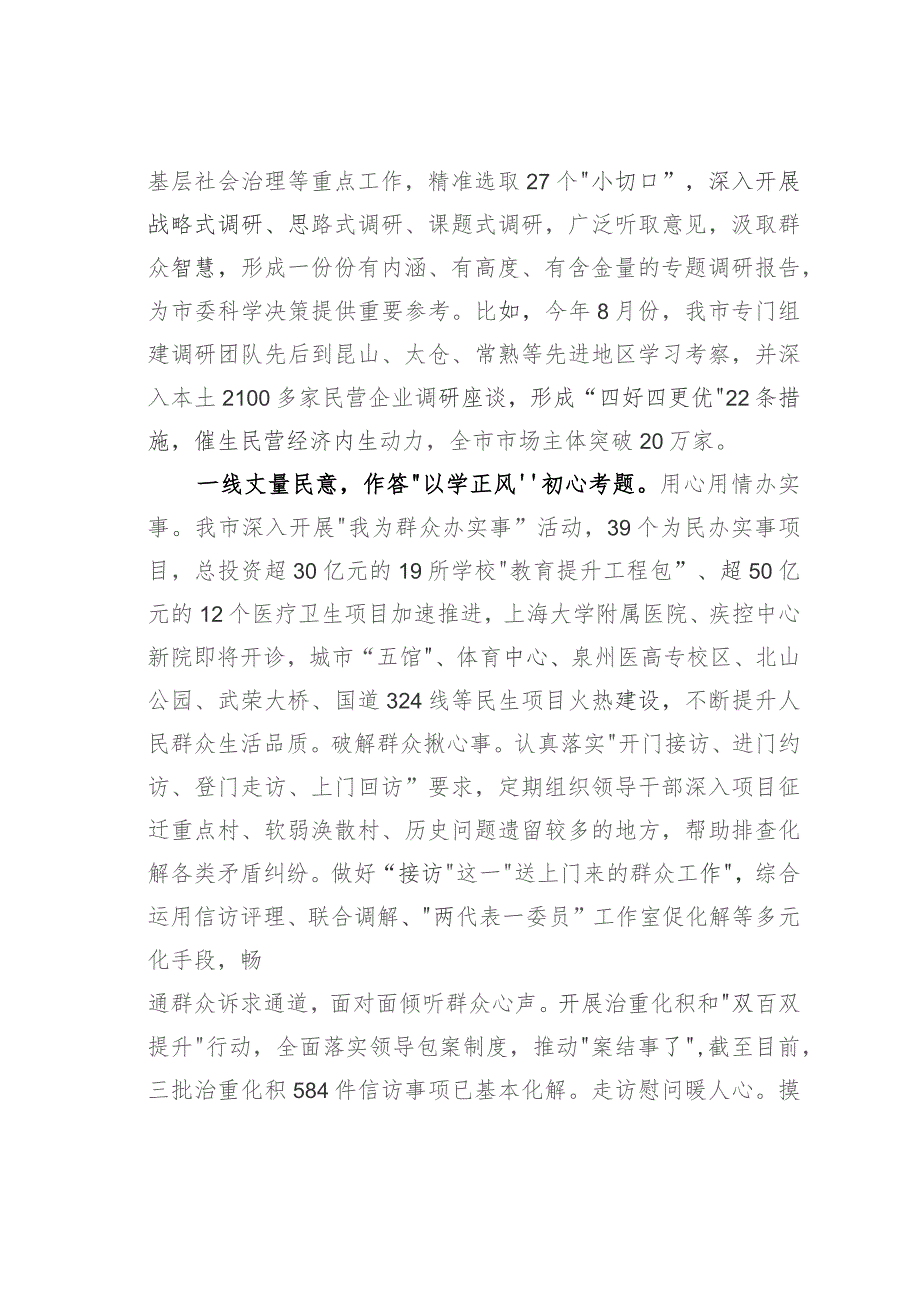 基层社会治理等重点工作，精准选取 27 个"小切口”，深入开展
战略式调研、思路式调研、课题式调研，广泛听取意见，汲取群
众智慧，形成一份份有内涵、有高度、有含金量的专题调研报告，
为市委科学决策提供重要参考。比如，今年 8 月份，我市专门组
建调研团队先后到昆山、太仓、常熟等先进地区学习考察，并深
入本土 2100 多家民营企业调研座谈，形成“四好四更优"22 条措
施，催生民营经济内生动力，全市市场主体突破 20 万家。
一线丈量民意，作答"以学正风''初心考题。用心用情办实
事。我市深入开展"我为群众办实事”活动，39 个为民办实事项
目，总投资超 30 亿元的 19 所学校"教育提升工程包”、超 50 亿
元的 12 个医疗卫生项目加速推进，上海大学附属医院、疾控中心
新院即将开诊，城市“五馆"、体育中心、泉州医高专校区、北山
公园、武荣大桥、国道 324 线等民生项目火热建设，不断提升人
民群众生活品质。破解群众揪心事。认真落实"开门接访、进门约
访、登门走访、上门回访”要求，定期组织领导干部深入项目征
迁重点村、软弱涣散村、历史问题遗留较多的地方，帮助排查化
解各类矛盾纠纷。做好“接访"这一"送上门来的群众工作"，综合
运用信访评理、联合调解、"两代表一委员”工作室促化解等多元
化手段，畅
通群众诉求通道，面对面倾听群众心声。开展治重化积和"双百双
提升"行动，全面落实领导包案制度，推动"案结事了",截至目前，
三批治重化积 584 件信访事项已基本化解。走访慰问暖人心。摸